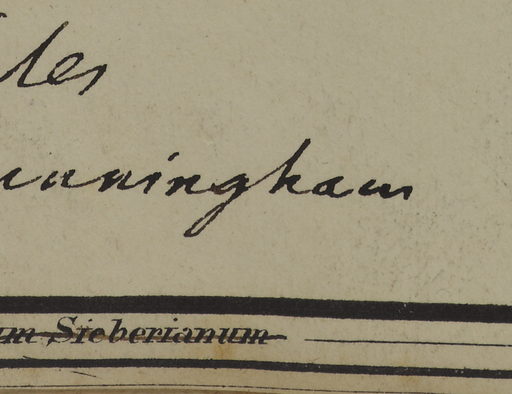 les
unningham
um Sieberianum